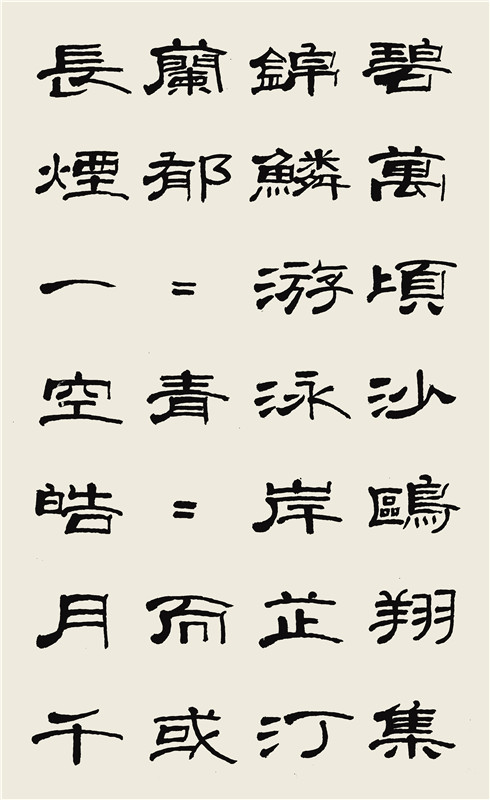 碧萬頃沙鷗翔集
錦鱗游泳岸芷汀
蘭郁=青=而或
長煙一空皓月千